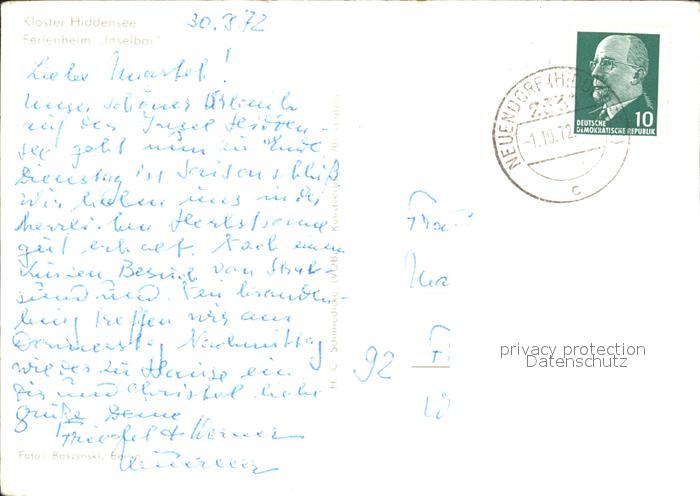 Kloster Hiddensee
Ferienheim „Inselbar"
30.9.72
Liebe
Unser schöner Urlaub
auf der Insel Hidden-
see geht nun zu Ende
Dienstag ist Saisonschluß
Wir haben uns in der
herrlichen Herbstsonne
gut erholt. Nach einem
kurzen Besuch von Stral-
sund und
burg treffen wir am
Donnerstag Nachmittag
wieder zu Hause ein
Dir und Christel liebe
Grüße Deine
Friedel + Werner
Foto: Boszynski, Berlin
H. C. Schmiedicke (VOB) Kunstverlag
Frau
92
NEUENDORF (HIDD
-1.10.72
c
10
DEUTSCHE
DEMOKRATISCHE REPUBLIK
privacy protection
Datenschutz